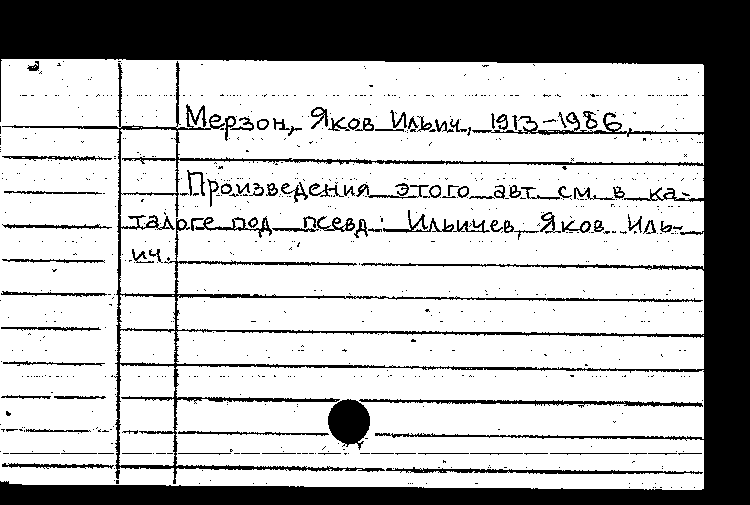 Мерзон, Яков Ильич, 1913-1986,
Произведения этого авт. см. в ка-
талоге под псевд: Ильичев, Яков Иль-
ич.